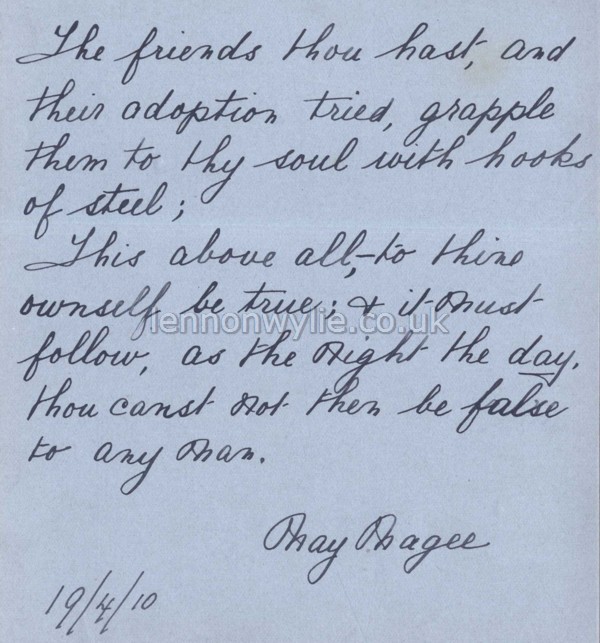 The friends thou hast, and
their adoption tried, grapple
them to thy soul with hooks
of steel;
This above all,-to thine
ownself be true; & it must
lennonwylie.co.uk
follow, as the night the day.
thou canst not then be false
to any man.
May Magee
19/4/10